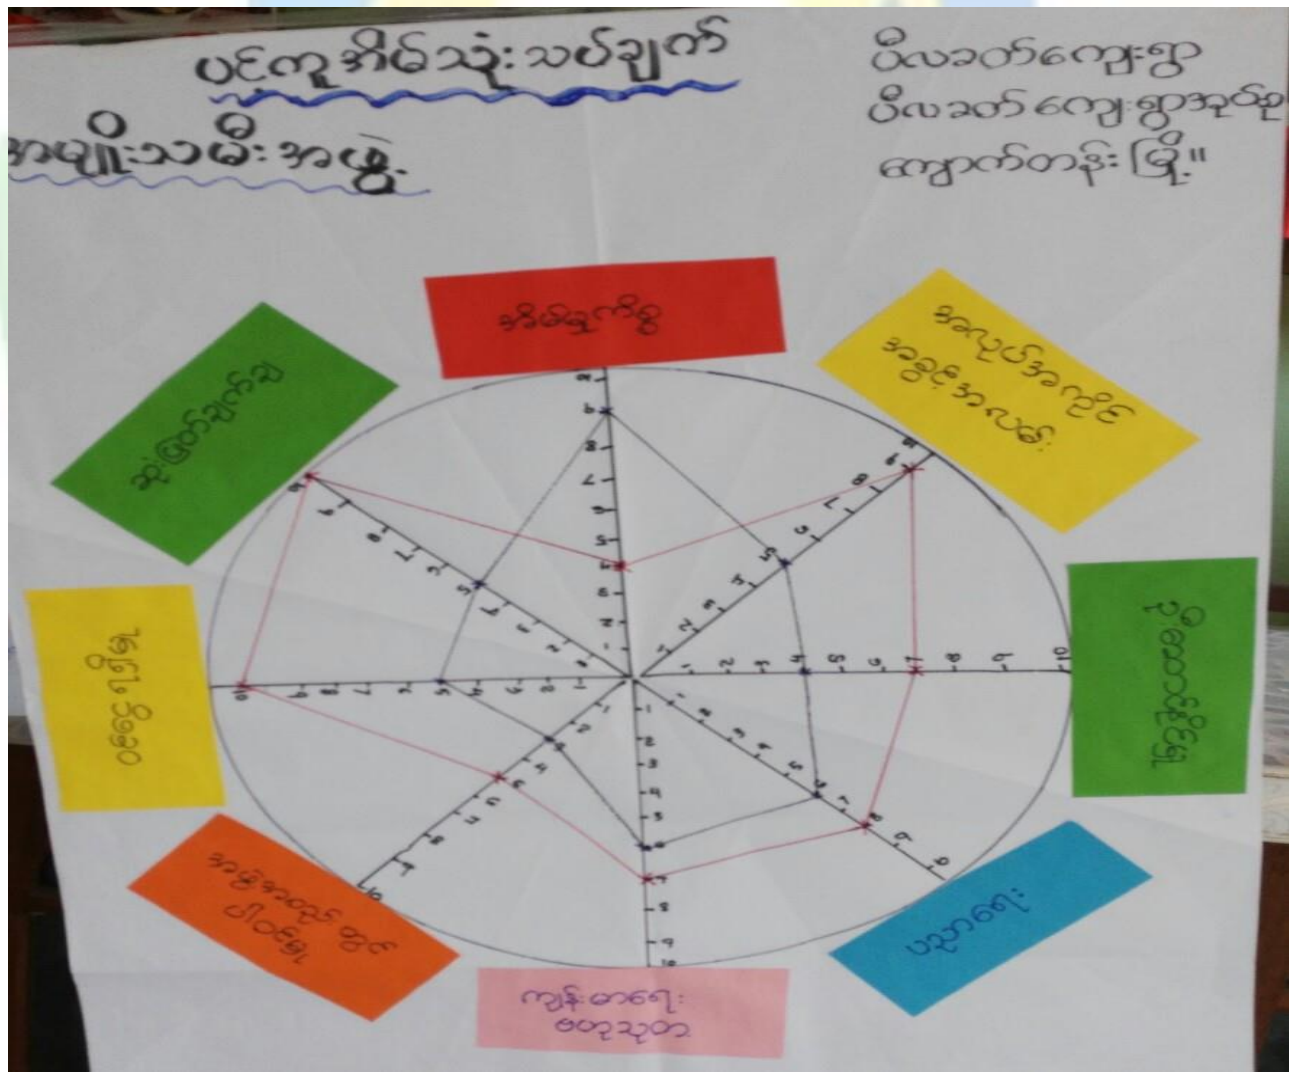 ပင့်ကူအိမ်သုံးသပ်ချက်
အမျိုးသမီးအဖွဲ့
ပီလခတ်ကျေးရွာ
ပီလခတ် ကျေးရွာအုပ်စု
ကျောက်တန်း မြို့။
အိမ်မှုကိစ္စ
အလုပ်အကိုင်
အခွင့်အလမ်း
ဦးဆောင်နိုင်မှု
ပညာရေး
ကျန်းမာရေး
ဗဟုသုတ
အဖွဲ့အစည်းတွင်
ပါဝင်မှု
ဝင်ငွေရရှိမှု
ဆုံးဖြတ်ချက်ချ